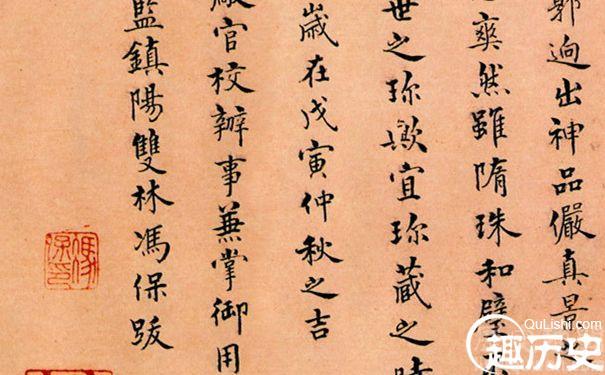 郭迥出神品儼真景
爽然雖隋珠和璧
世之珎歟宜珎藏之時
歲在戊寅仲秋之吉
廠官校辦事兼掌御用
監鎮陽雙林馮保跋
QuLiShi.com
趣历史